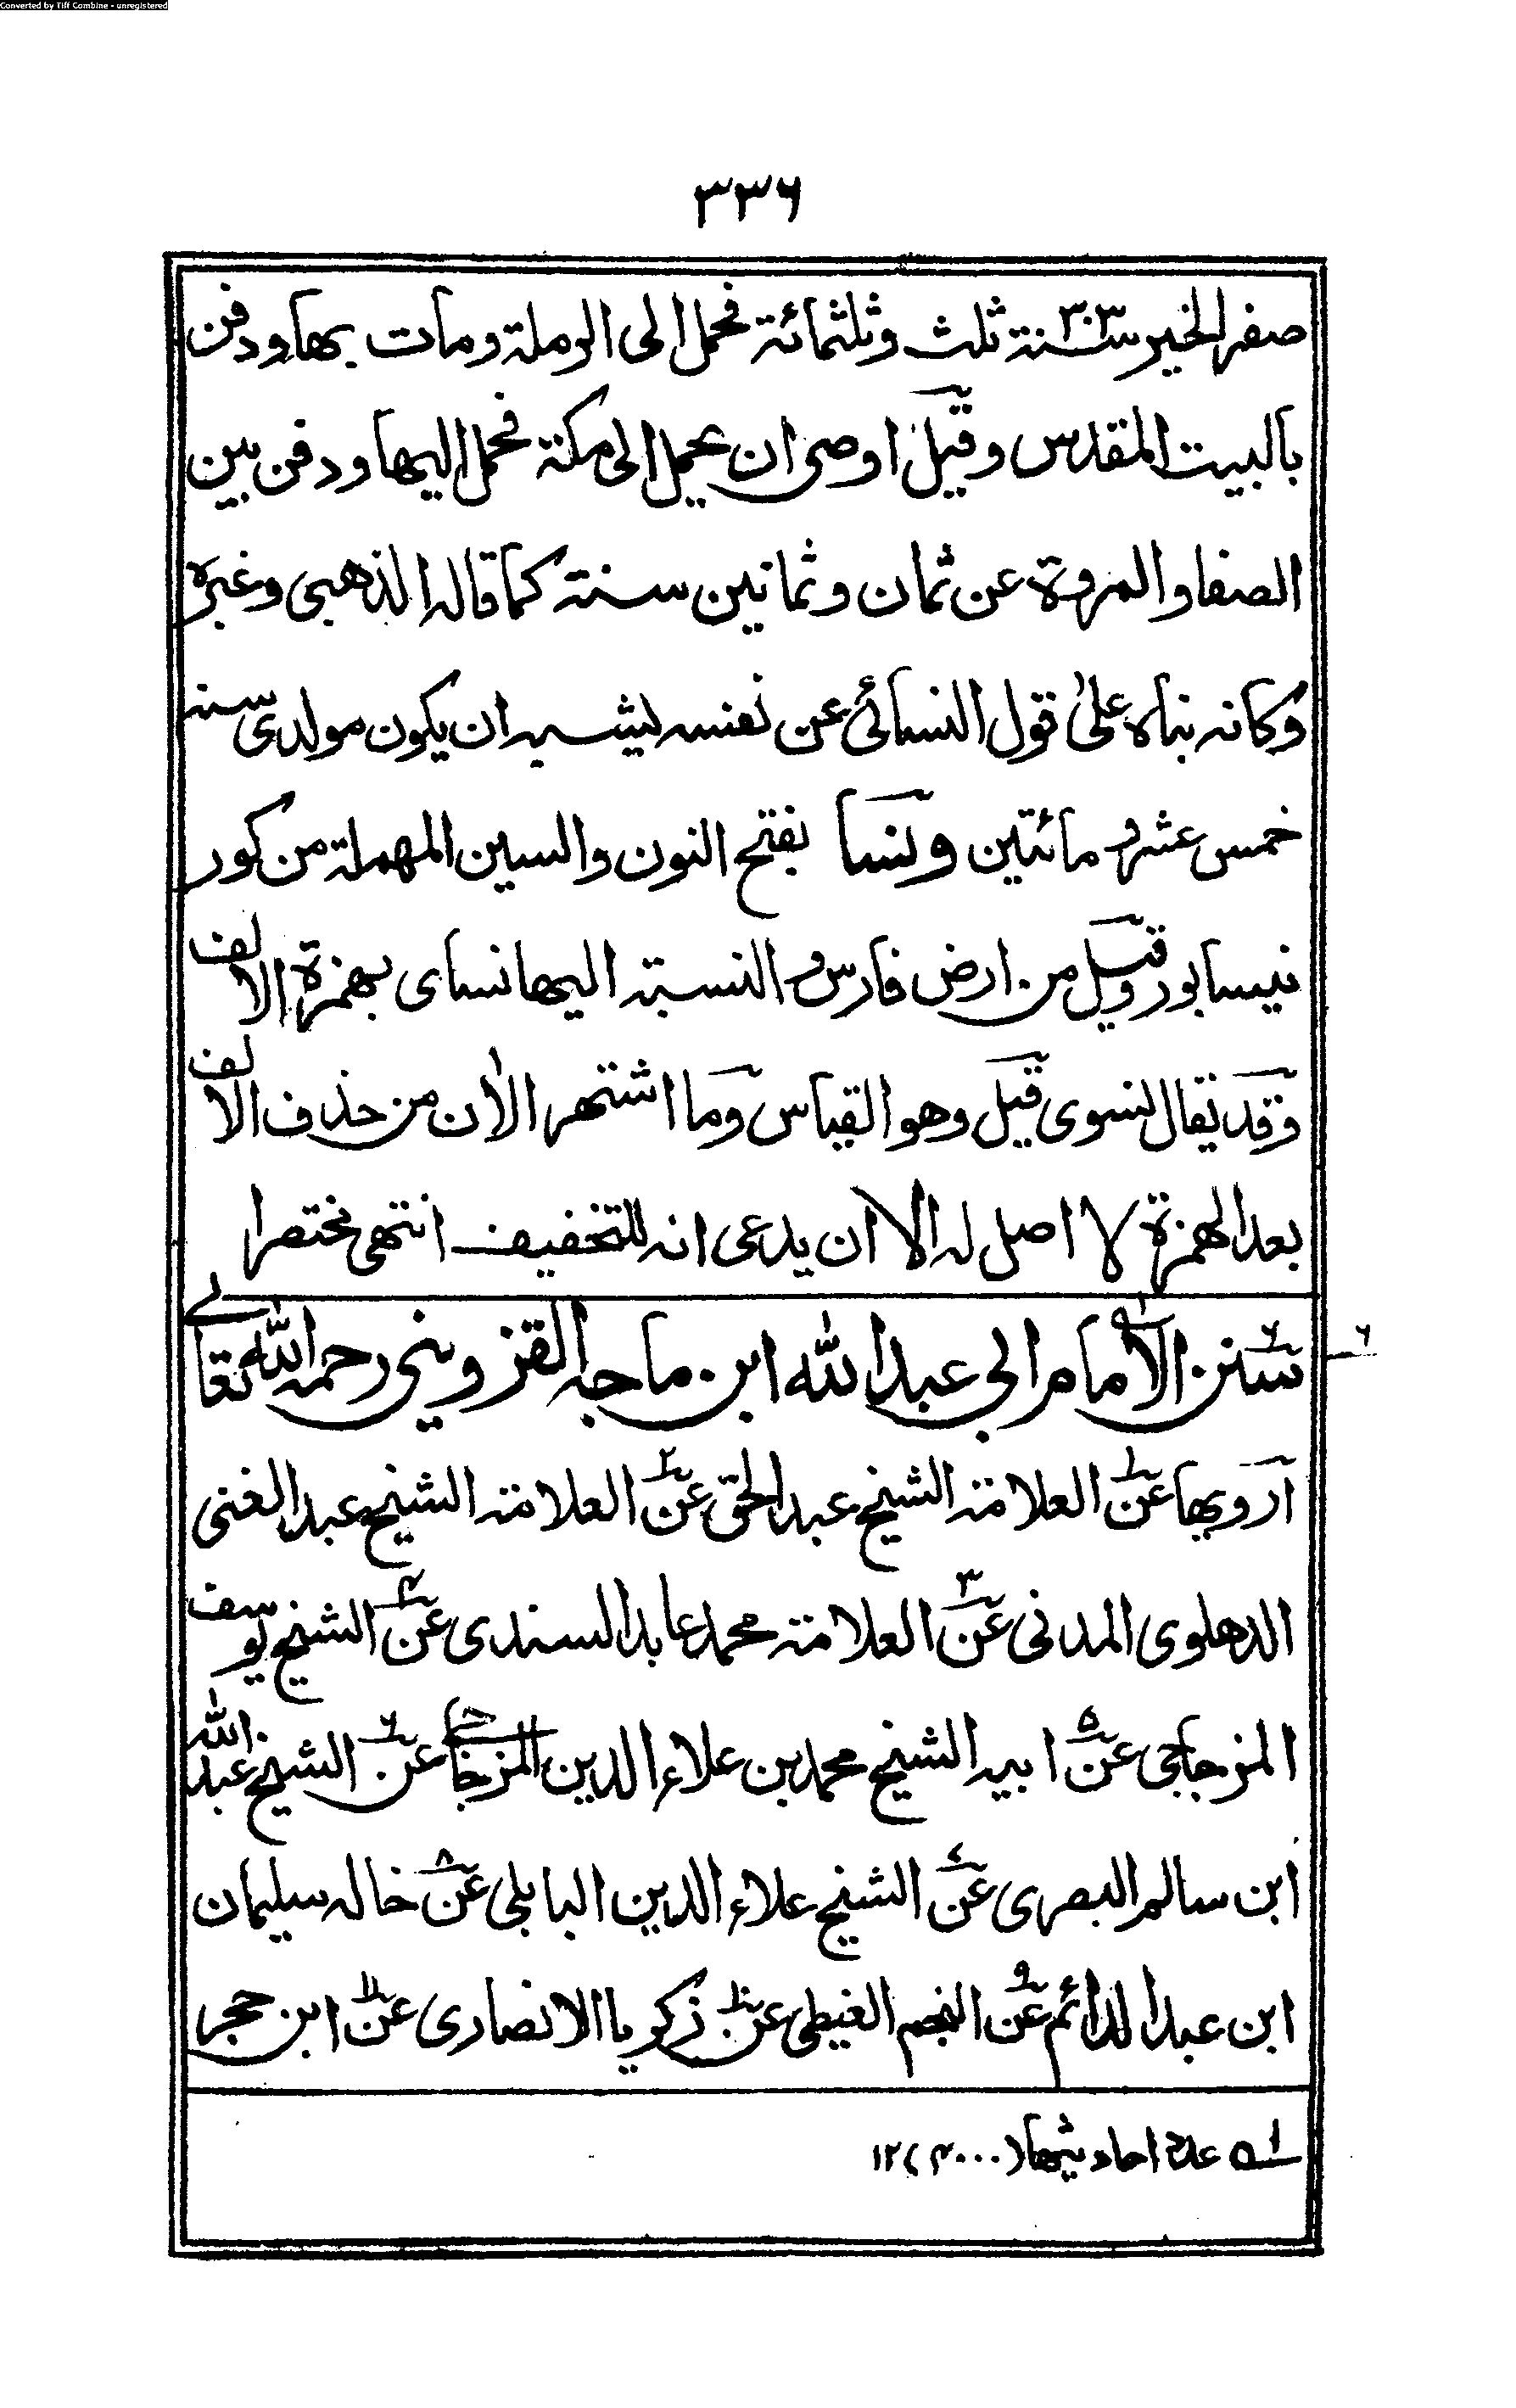 Converted by Tiff Combine - unregistered
٣٣٦
صفر الخير سنة ٣٠٣ ثلث وثلثمائة فحمل الى الرملة ومات بها ودفن
بالبيت المقدس وقيل اوصى ان يحمل الى مكة فحمل اليها ودفن بين
الصفا والمروة عن ثمان وثمانين سنة كما قاله الذهبى وغيره
وكانه بناه على قول النسائى عن نفسه يشبه ان يكون مولدى سنة
خمس عشر ومائتين ونسا بفتح النون والسين المهملة من كور
نيسابور وقيل من ارض فارس والنسبة اليها نساى بهمزة الالف
وقد يقال نسوى قيل وهو القياس وما اشتهر الأن من حذف الالف
بعد الهمزة لا اصل له الا ان يدعى انه للتخفيف انتهى مختصرا
٦ سنن الامام ابى عبد الله ابن ماجه القزوينى رحمه الله تعالے
٦
ارويها عن١ العلامة الشيخ عبد الحق عن٢ العلامة الشيخ عبد الغنى
الدهلوى المدنى عن٣ العلامة محمد عابد السندى عن٤ الشيخ يوسف
المزجاجى عن٥ ابيه الشيخ محمد بن علاء الدين المزجاجى عن٦ الشيخ عبد الله
ابن سالم البصرى عن٧ الشيخ علاء الدين البابلى عن٨ خاله سليمان
ابن عبد الدائم عن٩ النجم الغيطى عن١٠ زكريا الانصارى عن١١ ابن حجر
١ـه عدة احاديثها (٤٠٠٠) ١٢